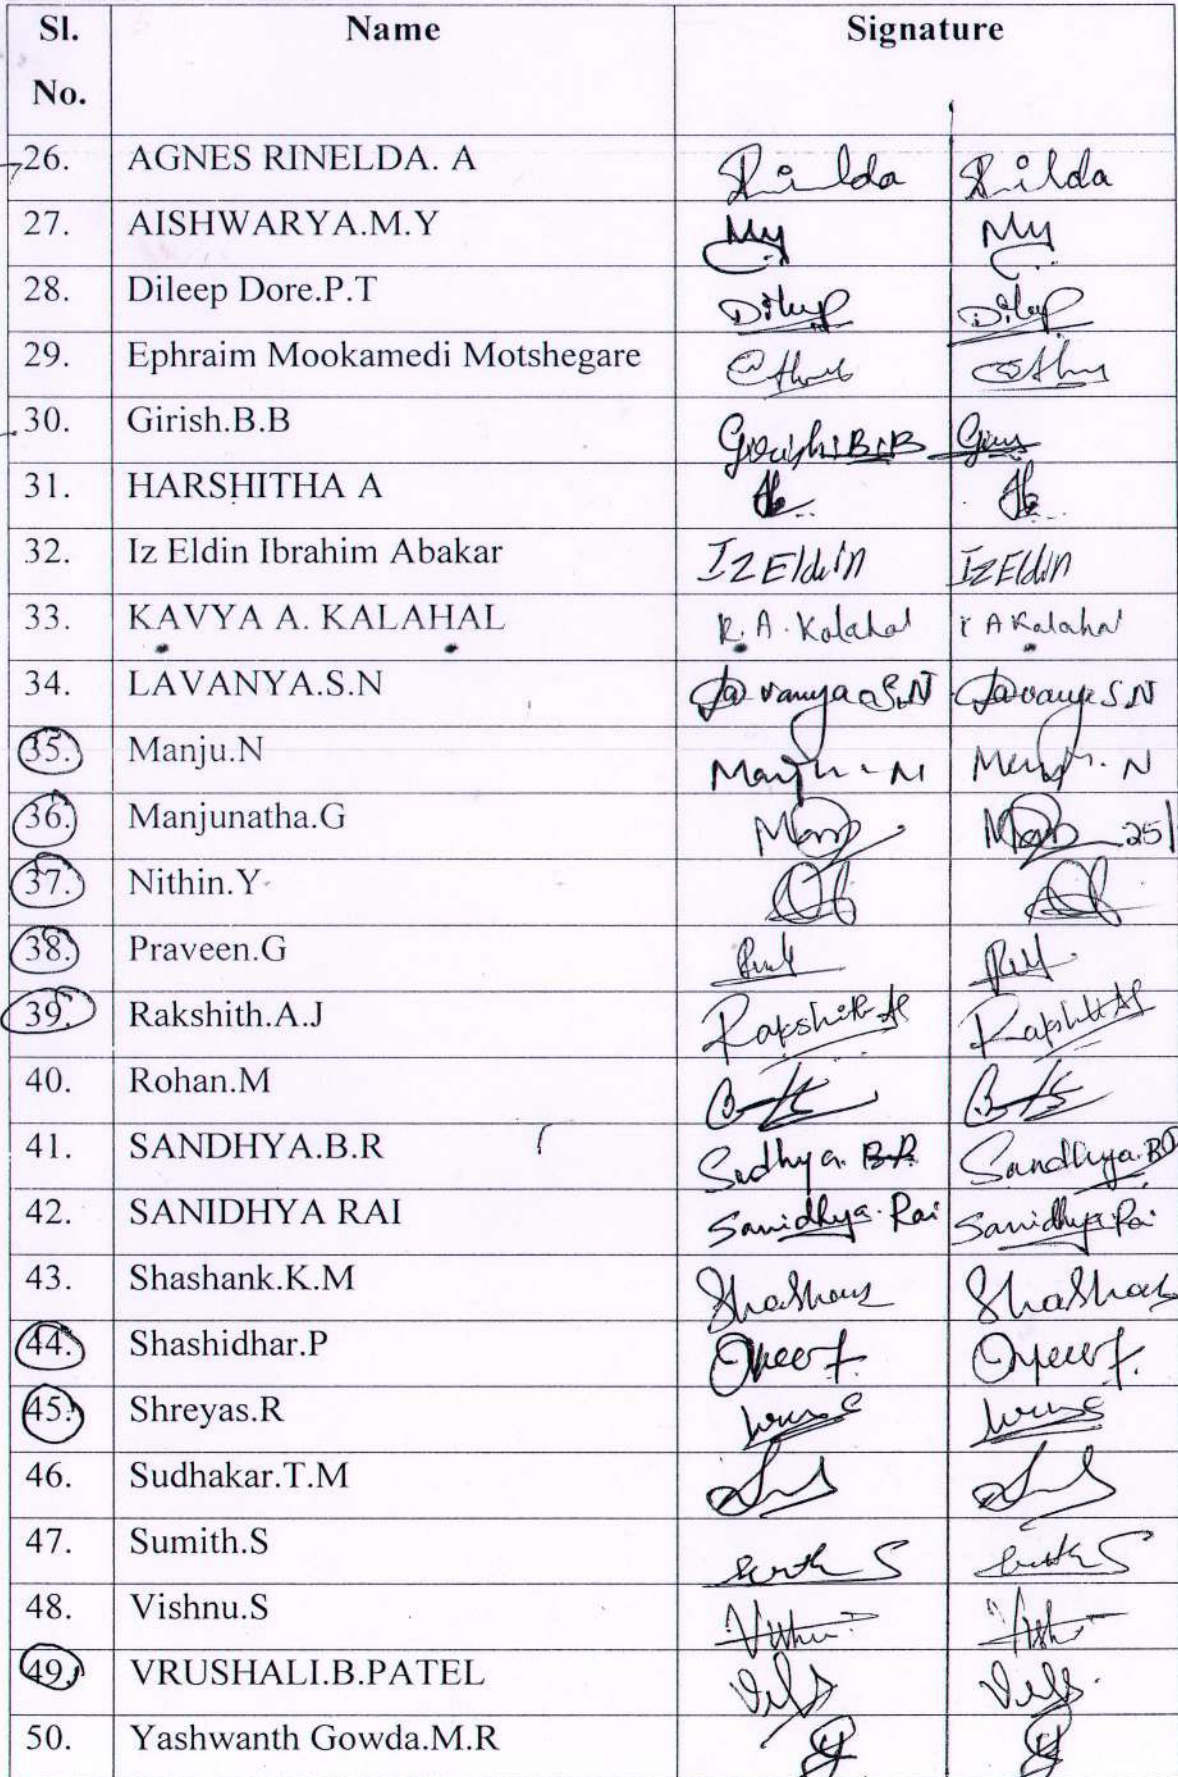 Sl. No. Name Signature
26. AGNES RINELDA. A Rinlda Rinlda
27. AISHWARYA.M.Y My My
28. Dileep Dore.P.T Dileep Dileep
29. Ephraim Mookamedi Motshegare
30. Girish.B.B Girish.B.B
31. HARSHITHA A
32. Iz Eldin Ibrahim Abakar Iz Eldin Iz Eldin
33. KAVYA A. KALAHAL K. A. Kalahal K A Kalahal
34. LAVANYA.S.N Lavanya S.N Lavanya S.N
35. Manju.N Manju. N Manju. N
36. Manjunatha.G 25/
37. Nithin.Y
38. Praveen.G
39. Rakshith.A.J Rakshith AJ Rakshith AJ
40. Rohan.M
41. SANDHYA.B.R Sadhya. B.R Sandhya.BR
42. SANIDHYA RAI Sanidhya. Rai Sanidhya Rai
43. Shashank.K.M Shashank Shashank
44. Shashidhar.P
45. Shreyas.R
46. Sudhakar.T.M
47. Sumith.S
48. Vishnu.S Vishnu
49. VRUSHALI.B.PATEL
50. Yashwanth Gowda.M.R